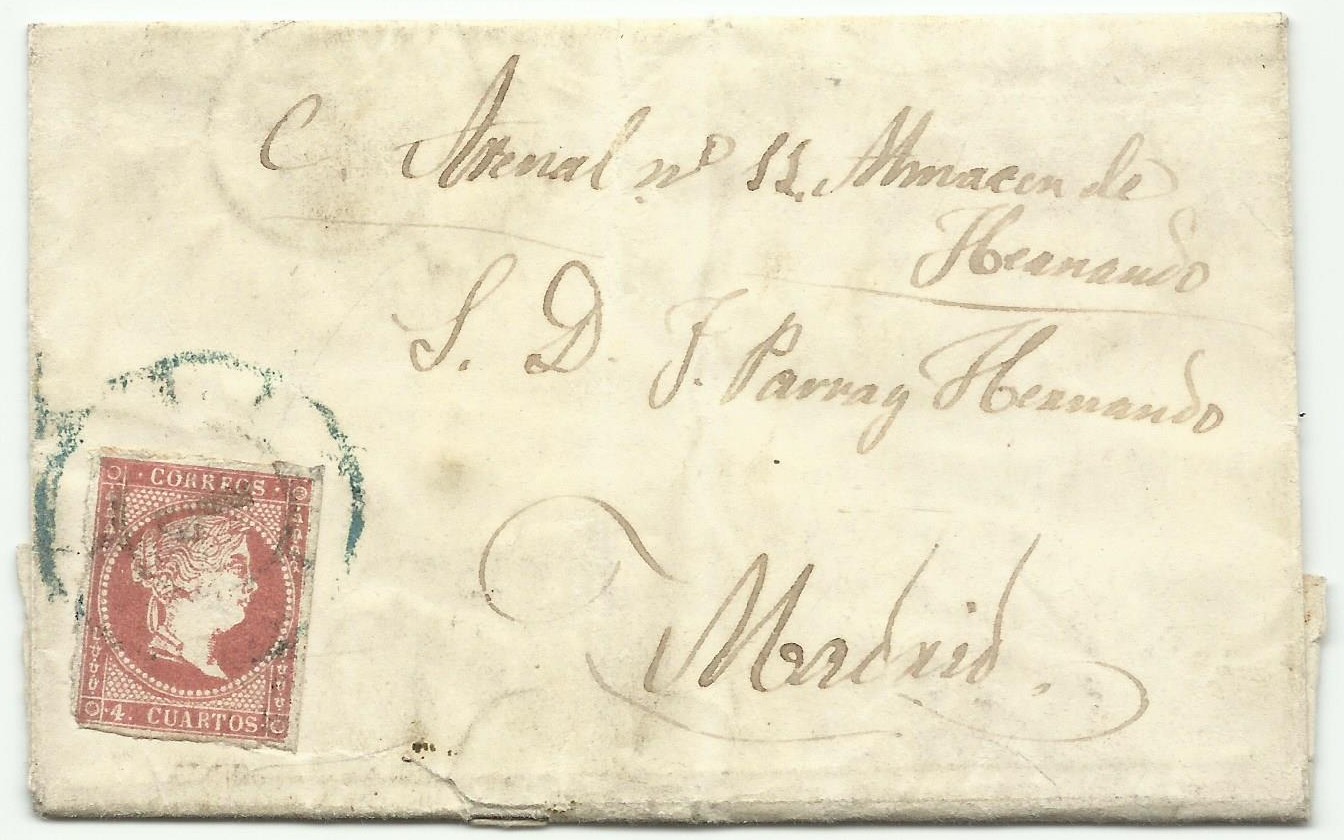 C Arenal nº 11 Almacen de
Hernando
S. D. J. Parra y Hernando
Madrid.
· CORREOS ·
· 4 · CUARTOS ·